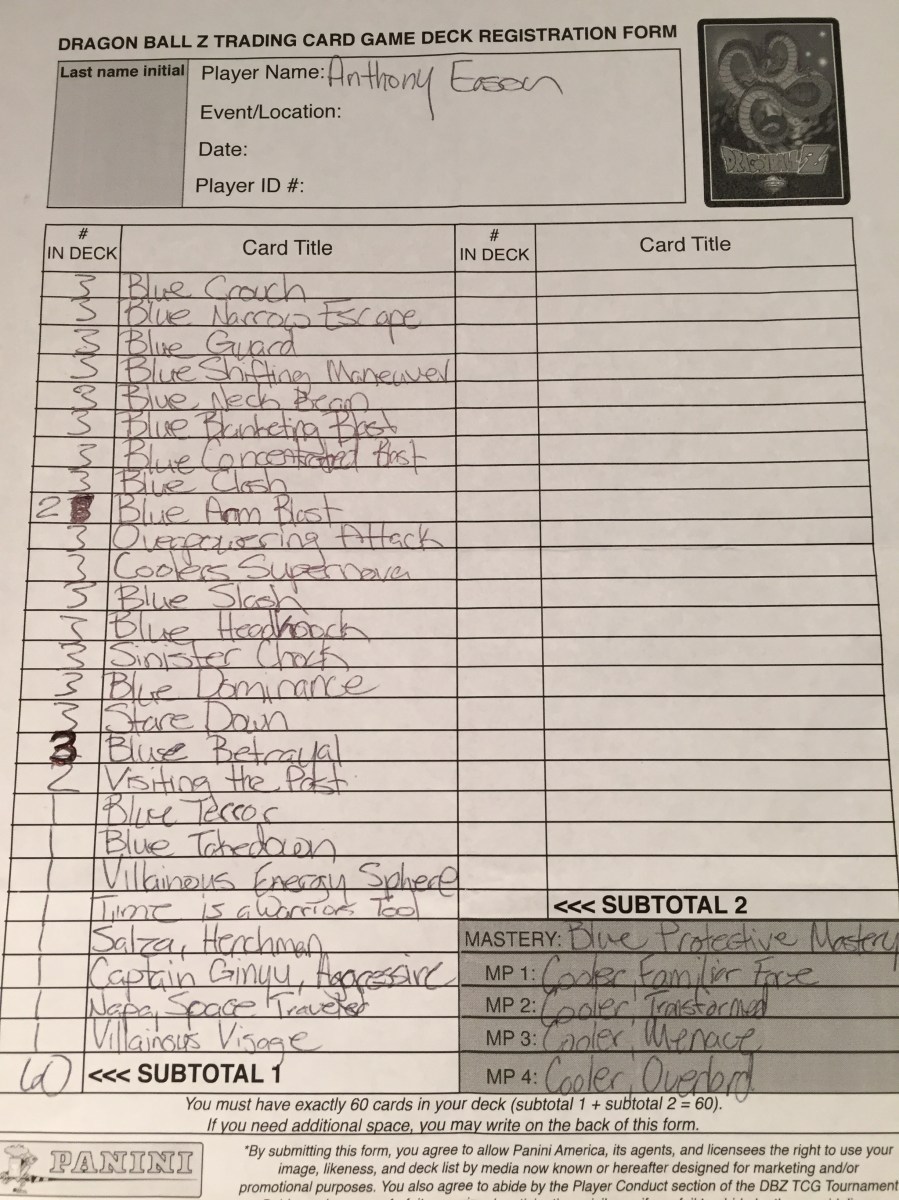 DRAGON BALL Z TRADING CARD GAME DECK REGISTRATION FORM
Last name initial
Player Name: Anthony Eason
Event/Location:
Date:
Player ID #:
DRAGONBALL Z
# IN DECK Card Title # IN DECK Card Title
3 Blue Crouch
3 Blue Narrow Escape
3 Blue Guard
3 Blue Shifting Maneuver
3 Blue Neck Beam
3 Blue Blanketing Blast
3 Blue Concentrated Blast
3 Blue Clash
2 Blue Arm Blast
3 Overpowering Attack
3 Coolers Supernova
3 Blue Slash
3 Blue Headknock
3 Sinister Choke
3 Blue Dominance
3 Stare Down
3 Blue Betrayal
2 Visiting the Past
1 Blue Terror
1 Blue Takedown
1 Villainous Energy Sphere
1 Time is a Warriors Tool
1 Salza, Henchman
1 Captain Ginyu, Aggressive
1 Napa, Space Traveler
1 Villainous Visage
60 <<< SUBTOTAL 1
<<< SUBTOTAL 2
MASTERY: Blue Protective Mastery
MP 1: Cooler, Familiar Foe
MP 2: Cooler, Transformed
MP 3: Cooler, Menace
MP 4: Cooler, Overlord
You must have exactly 60 cards in your deck (subtotal 1 + subtotal 2 = 60).
If you need additional space, you may write on the back of this form.
PANINI
*By submitting this form, you agree to allow Panini America, its agents, and licensees the right to use your
image, likeness, and deck list by media now known or hereafter designed for marketing and/or
promotional purposes. You also agree to abide by the Player Conduct section of the DBZ TCG Tournament